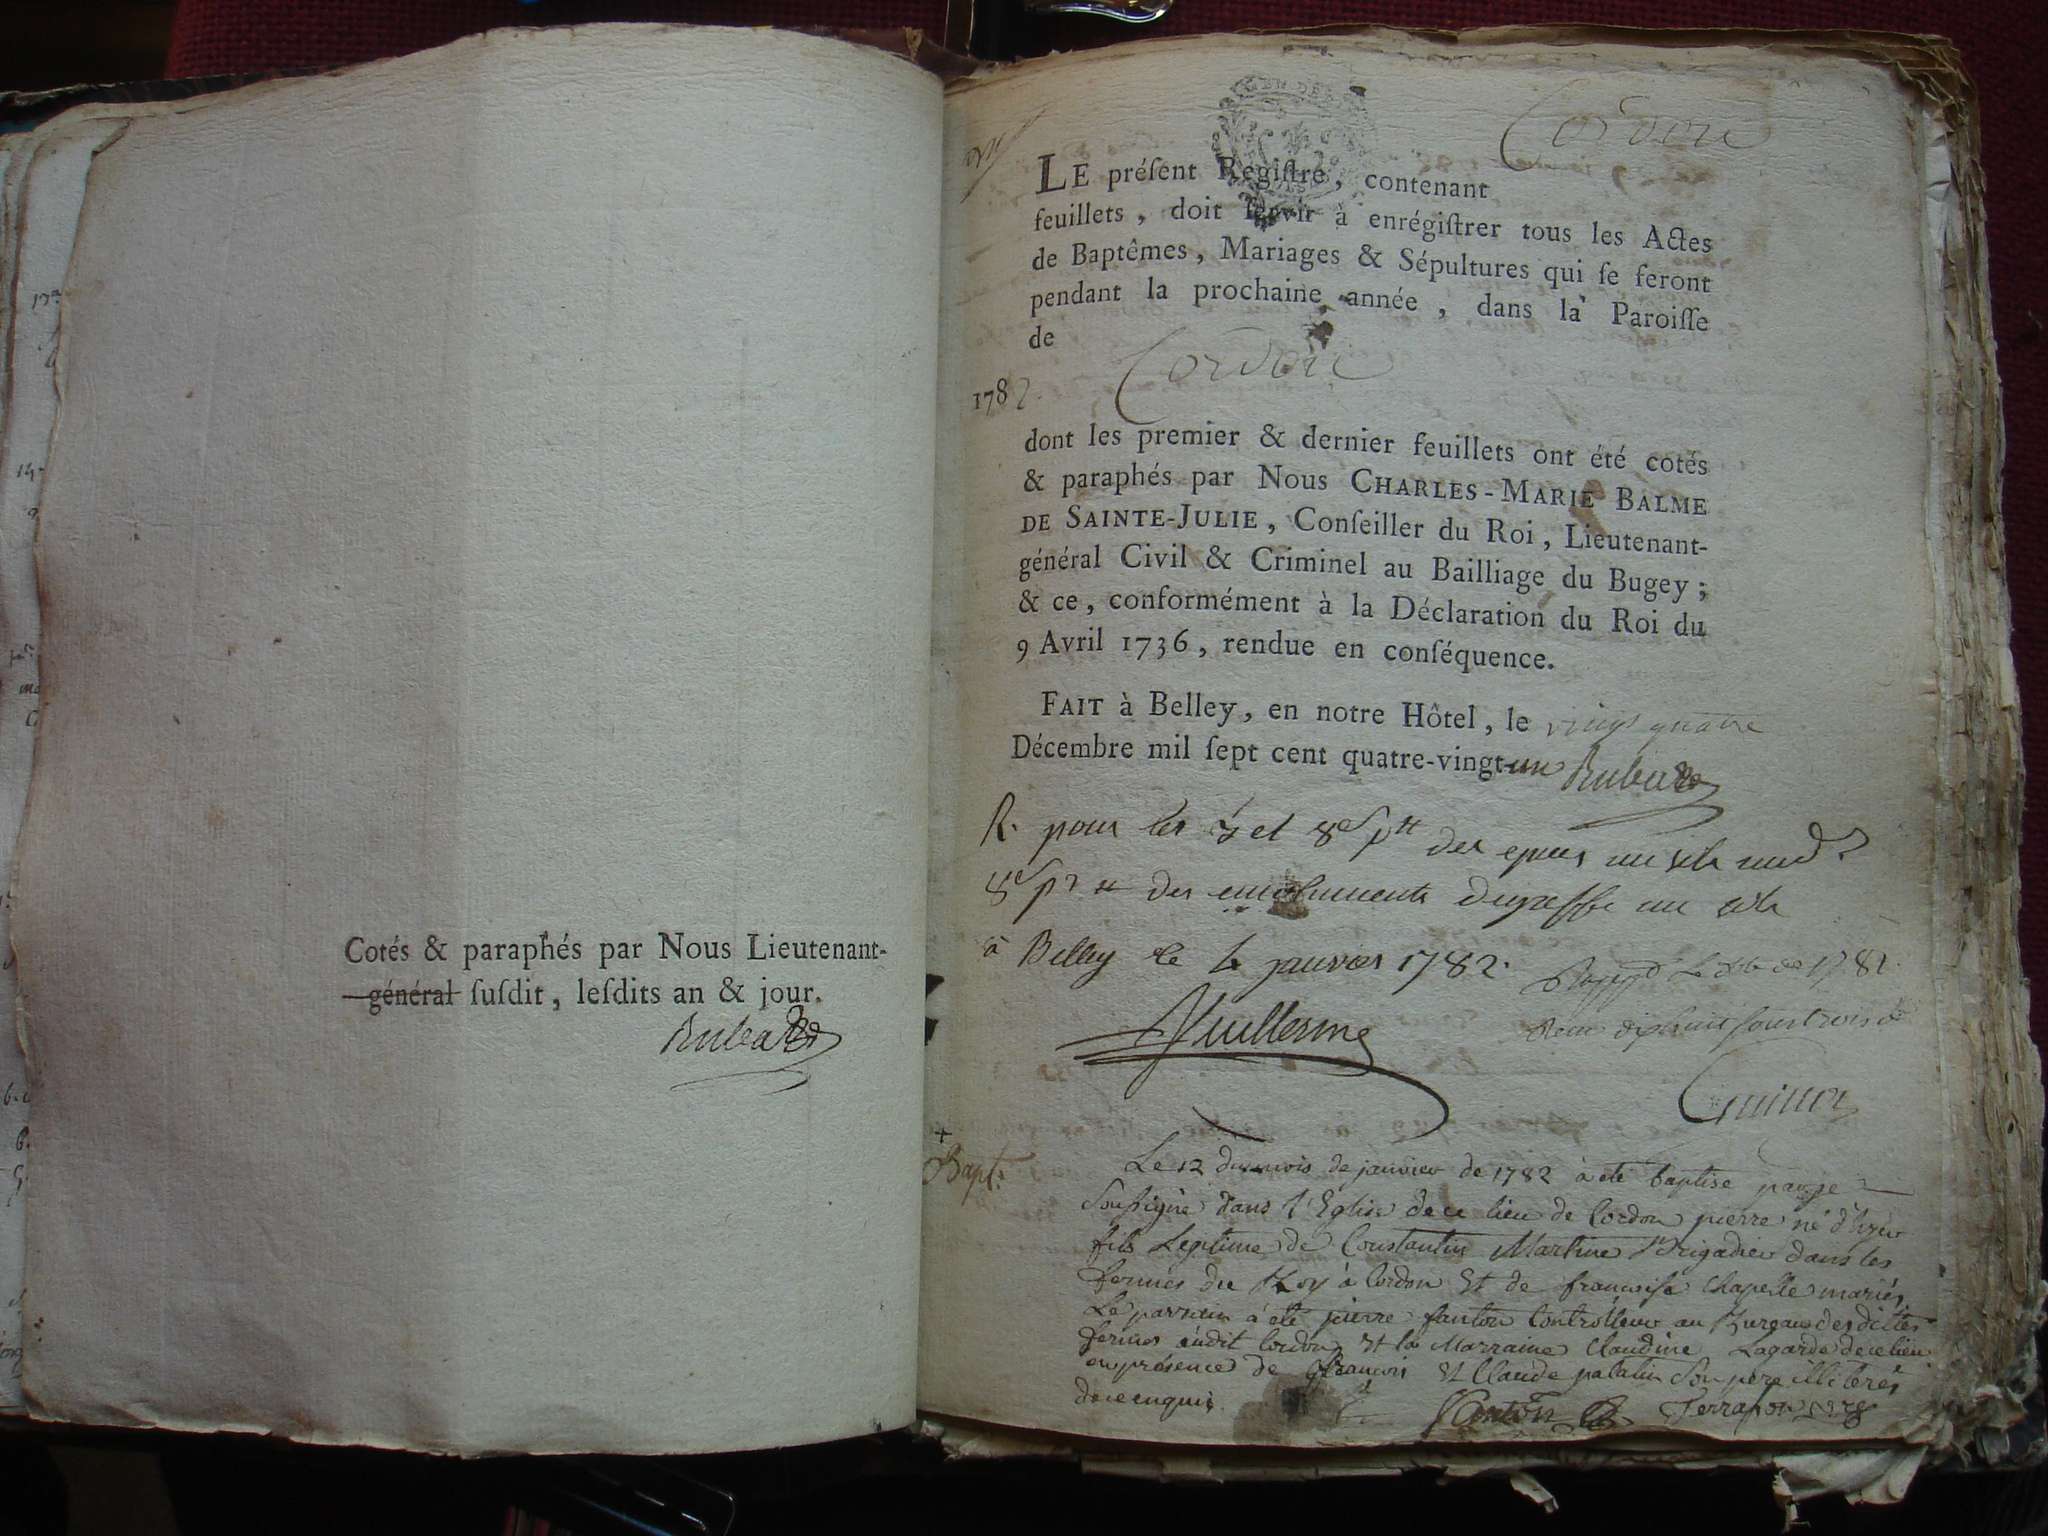 Cotés & paraphés par Nous Lieutenant-
général suſdit, leſdits an & jour.
Cordon
LE préſent Regiſtre, contenant
feuillets, doit ſervir à enrégiſtrer tous les Actes
de Baptêmes, Mariages & Sépultures qui ſe feront
pendant la prochaine année, dans la Paroiſſe
de
Cordon
1782.
dont les premier & dernier feuillets ont été cotés
& paraphés par Nous CHARLES-MARIE BALME
DE SAINTE-JULIE, Conſeiller du Roi, Lieutenant-
général Civil & Criminel au Bailliage du Bugey;
& ce, conformément à la Déclaration du Roi du
9 Avril 1736, rendue en conſéquence.
FAIT à Belley, en notre Hôtel, le vingt quatre
Décembre mil ſept cent quatre-vingt-un
R. pour les et 8
des emoluments du greffe
à Belley le janvier 1782.
Guillerme
Bapt.
Le 12 du mois de janvier de 1782 à été baptisé par je
Soussigné dans l'Eglise de ce lieu de Cordon pierre né d'hyer
fils Legitime de Constantin Martine Brigadier dans les
fermes du Roy à Cordon Et de francoise Chapelle mariés
Le parrain à été pierre fanton Controlleur au Bureau des dittes
fermes audit Cordon et la Marraine Claudine Lagarde de ce lieu
en présence de francois Et Claude palatin Son pere illiterés
de ce enquis.